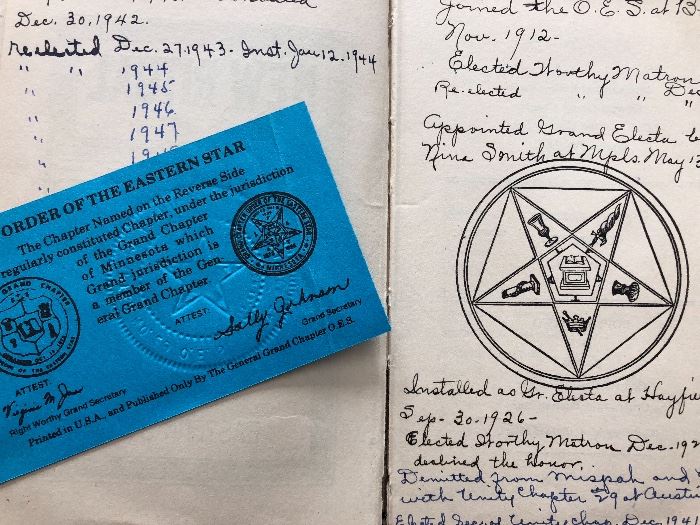 Dec. 30, 1942.
Re elected Dec. 27. 1943 - Inst. Jan 12. 1944
" " 1944
" " 1945
" 1946
" 1947
"
ORDER OF THE EASTERN STAR
The Chapter Named on the Reverse Side
regularly constituted Chapter, under the jurisdiction
of the Grand Chapter
of Minnesota which
Grand jurisdiction is
a member of the Gen-
eral Grand Chapter
ATTEST: Sally Johnson
Grand Secretary
GRAND CHAPTER
ATTEST:
Right Worthy Grand Secretary
Printed in U.S.A., and Published Only By The General Grand Chapter O.E.S.
Joined the O.E.S. at B
Nov. 1912 -
Elected Worthy Matron
Re. elected " " Dec
Appointed Grand Electa
Nina Smith at Mpls. May 13
Installed as Gr. Electa at Hayfie
Sep. 30. 1926 -
Elected Worthy Matron Dec. 192
declined the honor.
Demitted from Mispah and
with Unity Chapter 29 at Austin
Elected Unity Chap. Dec. 1941